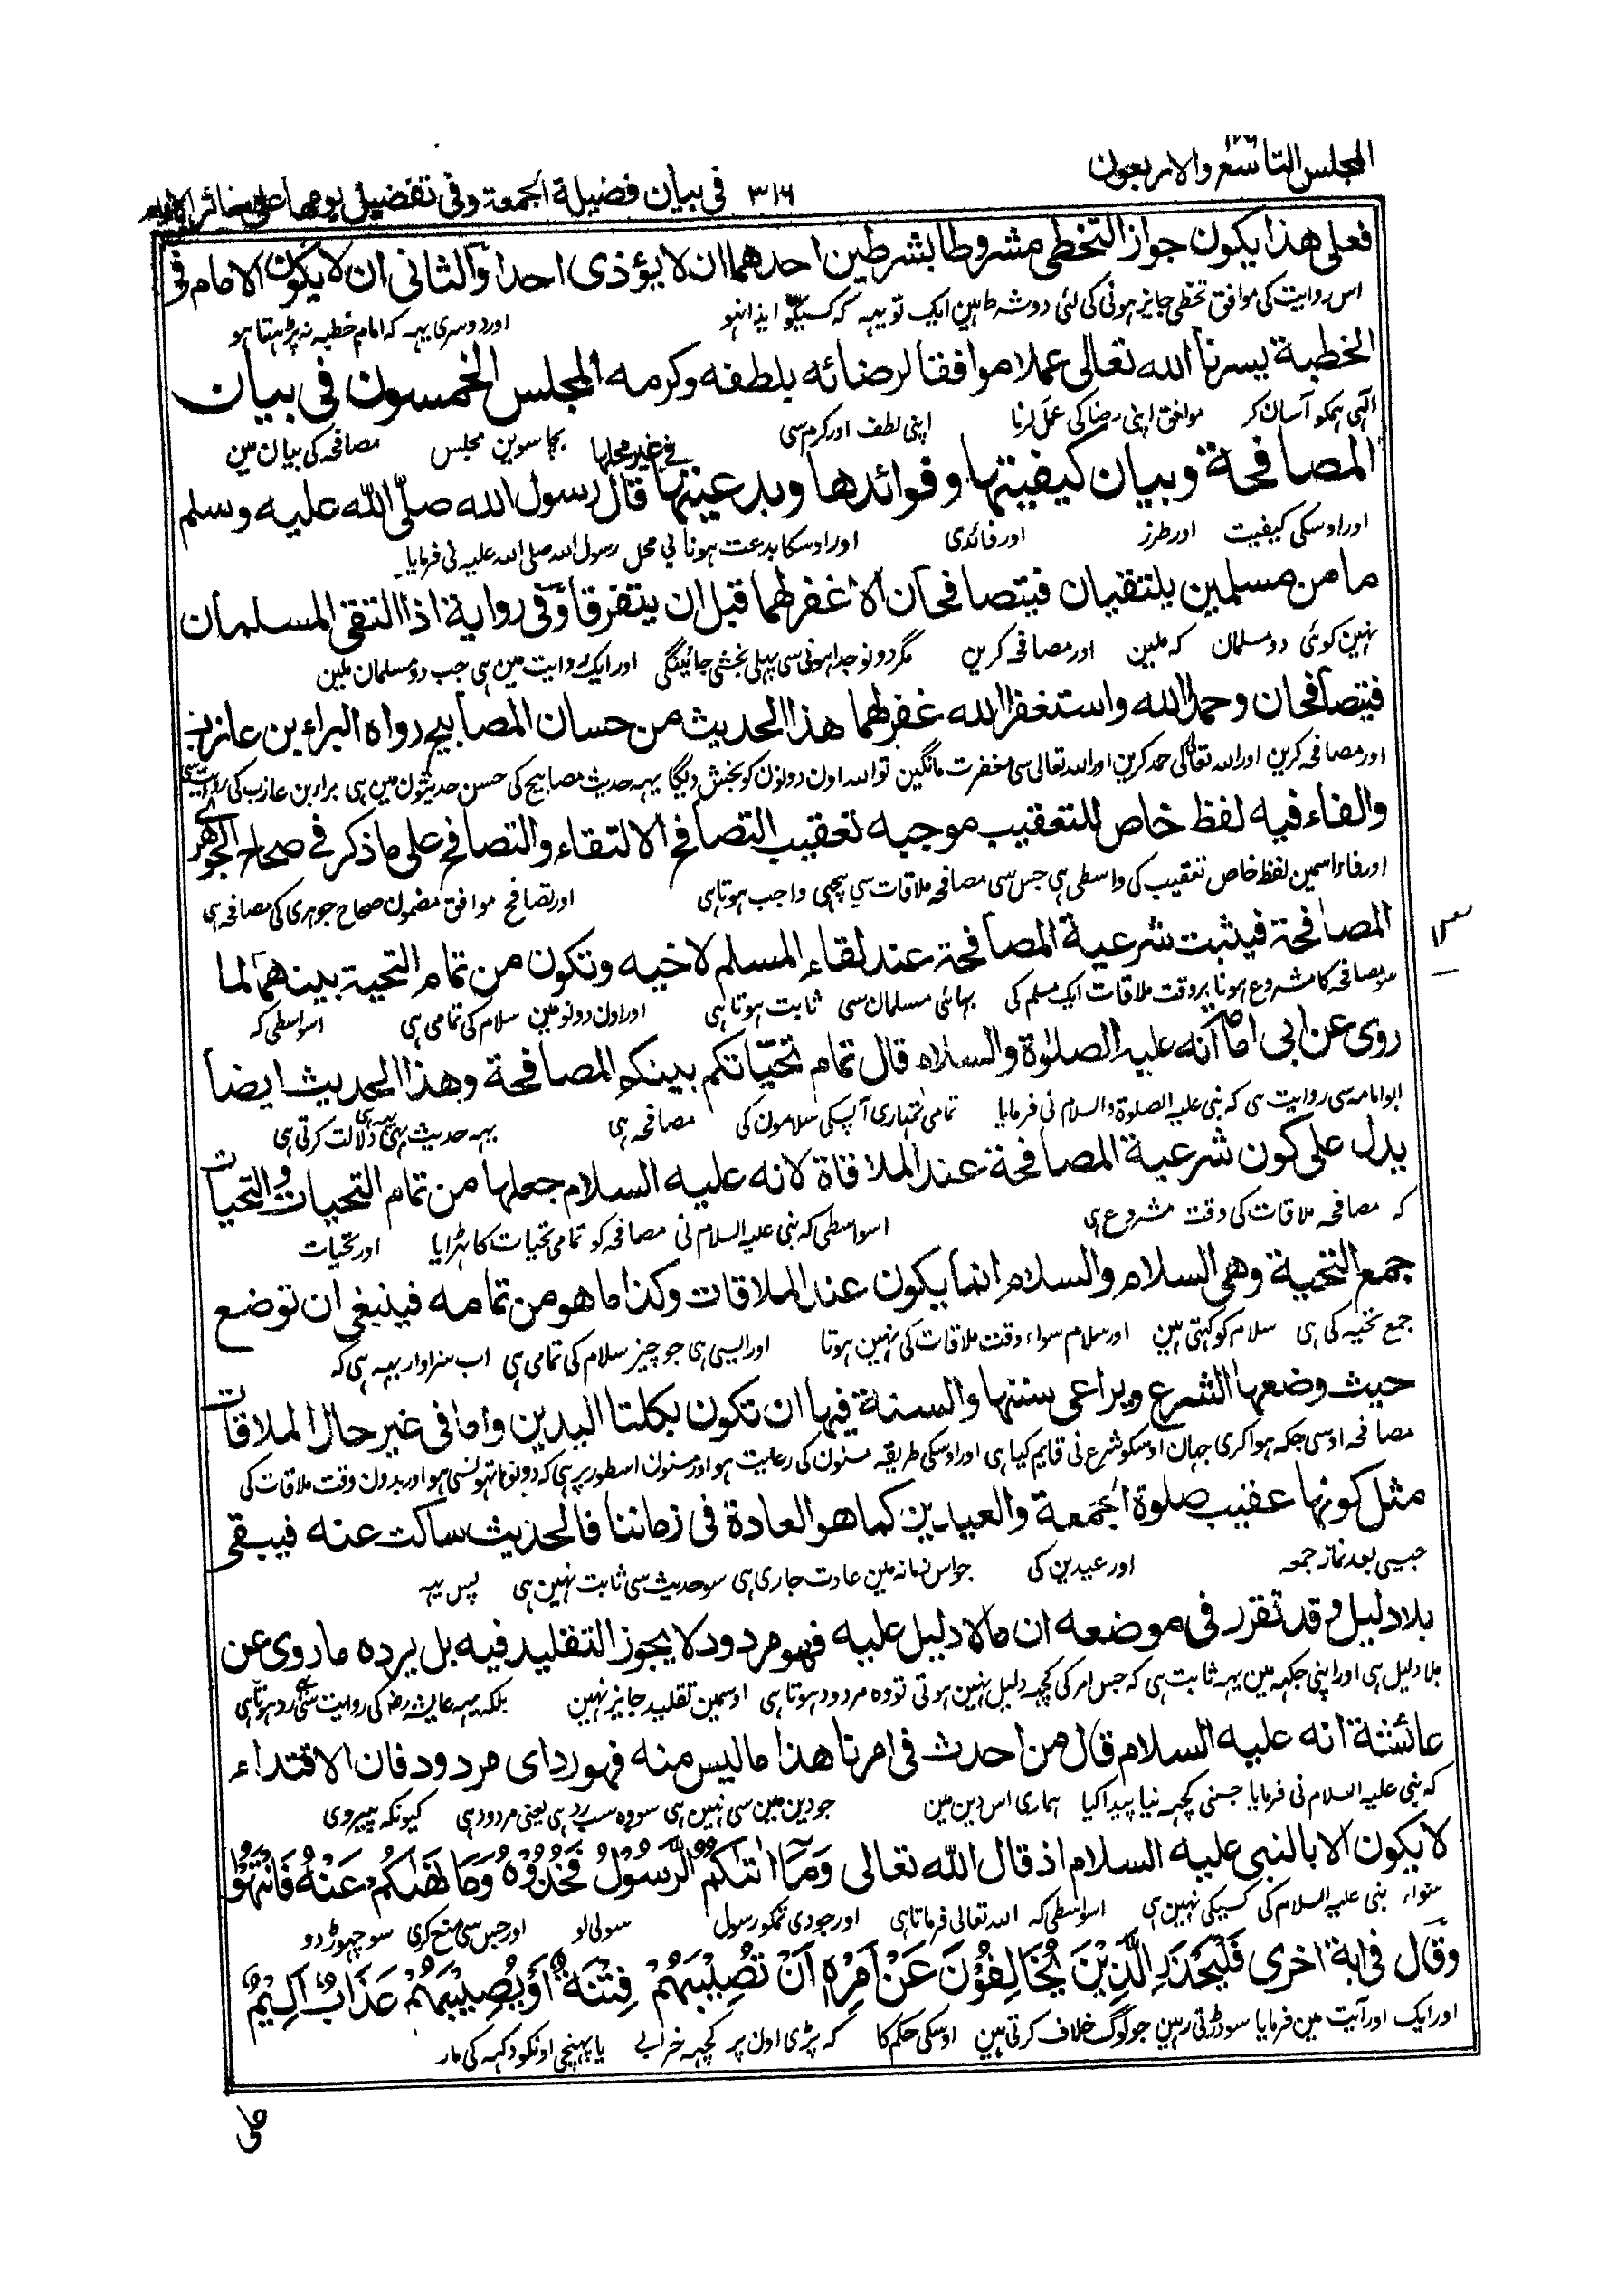 المجلس التاسع والاربعون
٣١٦ في بيان فضيلة الجمعة وفي تفضيل يومها على سائر الايام
فعلى هذا يكون جواز التخطى مشروطا بشرطين احدهما ان لا يؤذى احدا والثانى ان لا يكون الامام فى
اس روایت کی موافق تخطی جایز ہونی کی لئی دو شرطہین ایک تو یہہ کہ کسیکو ایذا نہو اور دوسری یہہ کہ امام خطبہ نہ پڑہتا ہو
الخطبة يسرنا الله تعالى عملا موافقا لرضائه بلطفه وكرمه المجلس الخمسون فى بيان
الٰہی ہمکو آسان کر موافق اپنی رضا کی عمل کرنا اپنی لطف اور کرم سی پچاسوین مجلس مصافحہ کی بیان مین
المصافحة وبيان كيفيتها وفوائدها وبدعيتها فى غير محلها قال رسول الله صلى الله عليه وسلم
اور اوسکی کیفیت اور طرز اور فائدی اور اوسکا بدعت ہونا بی محل رسول اللہ صلی اللہ علیہ نی فرمایا
ما من مسلمين يلتقيان فيتصافحان الا غفر لهما قبل ان يتفرقا وفى رواية اذا التقى المسلمان
نہین کوئی دو مسلمان کہ ملین اور مصافحہ کرین مگر دونو جدا ہونی سی پہلی بخشی جائینگی اور ایک روایت مین ہی جب دو مسلمان ملین
فيتصافحان وحمدا الله واستغفرا الله غفر لهما هذا الحديث من حسان المصابيح رواه البراء بن عازب
اور مصافحہ کرین اور اللہ تعالی کی حمد کرین اور اللہ تعالی سی مغفرت مانگین تو اللہ اون دونون کو بخش دیگا یہہ حدیث مصابیح کی حسن حدیثون مین ہی براء بن عازب کی روایت سی
والفاء فيه لفظ خاص للتعقيب موجبه تعقيب التصافح الالتقاء والتصافح على ما ذكر فى صحاح الجوهرى
اور فاء اسمین لفظ خاص تعقیب کی واسطی ہی جس سی مصافحہ ملاقات سی پیچہی واجب ہوتا ہی اور تصافح موافق مضمون صحاح جوہری کی مصافحہ ہی
المصافحة فيثبت شرعية المصافحة عند لقاء المسلم لاخيه وتكون من تمام التحية بينهما لما
سو مصافحہ کا مشروع ہونا بروقت ملاقات ایک مسلم کی بہائی مسلمان سی ثابت ہوتا ہی اور اون دونو مین سلام کی تمامی ہی اسواسطی کہ
روى عن ابى امامة انه عليه الصلوة والسلام قال تمام تحياتكم بينكم المصافحة وهذا الحديث ايضا
ابو امامہ سی روایت ہی کہ نبی علیہ الصلوۃ والسلام نی فرمایا تمامی تمہاری آپسکی سلامون کی مصافحہ ہی یہہ حدیث بہی یہہ ہی دلالت کرتی ہی
يدل على كون شرعية المصافحة عند الملاقاة لانه عليه السلام جعلها من تمام التحيات والتحيات
کہ مصافحہ ملاقات کی وقت مشروع ہی اسواسطی کہ نبی علیہ السلام نی مصافحہ کو تمامی تحیات کا ٹہرایا اور تحیات
جمع التحية وهى السلام والسلام انما يكون عند الملاقات وكذا ما هو من تمامه فينبغى ان توضع
جمع تحیہ کی ہی سلام کو کہتی ہین اور سلام سواء وقت ملاقات کی نہین ہوتا اور ایسی ہی جو چیز سلام کی تمامی ہی اب سزاوار یہہ ہی کہ
حيث وضعها الشرع ويراعى سنتها والسنة فيها ان تكون بكلتا اليدين واما فى غير حال الملاقات
مصافحہ اوسی جگہ ہوا کری جہان اوسکو شرع نی قایم کیا ہی اور اوسکی طریقہ مسنون کی رعایت ہو اور مسنون اسطور پر ہی کہ دونو ہاتہونسی ہو اور بدون وقت ملاقات کی
مثل كونها عقيب صلوة الجمعة والعيدين كما هو العادة فى زماننا فالحديث ساكت عنه فيبقى
جیسی بعد نماز جمعہ اور عیدین کی جو اس زمانہ مین عادت جاری ہی سو حدیث سی ثابت نہین ہی پس یہہ
بلا دليل وقد تقرر فى موضعه ان ما لا دليل عليه فهو مردود لا يجوز التقليد فيه بل يرده ما روى عن
بلا دلیل ہی اور اپنی جگہہ مین یہہ ثابت ہی کہ جس امر کی کچہہ دلیل نہین ہوتی تو وہ مردود ہوتا ہی اوسمین تقلید جایز نہین بلکہ یہہ عایشہ رض کی روایت سی بہی رد ہوتا ہی
عائشة انه عليه السلام قال من احدث فى امرنا هذا ما ليس منه فهو رد اى مردود فان الاقتداء
کہ نبی علیہ السلام نی فرمایا جسنی کچہہ نیا پیدا کیا ہماری اس دین مین جو دین مین سی نہین ہی سو وہ سب رد ہی یعنی مردود ہی کیونکہ پیروی
لا يكون الا بالنبى عليه السلام اذ قال الله تعالى وَمَآ اٰتٰىكُمُ الرَّسُوْلُ فَخُذُوْهُ وَمَا نَهٰىكُمْ عَنْهُ فَانْتَهُوْا
سواء نبی علیہ السلام کی کسیکی نہین ہی اسواسطی کہ اللہ تعالی فرماتا ہی اور جو دی تمکو رسول سو لی لو اور جس سی منع کری سو چہوڑ دو
وقال فى اية اخرى فَلْيَحْذَرِ الَّذِيْنَ يُخَالِفُوْنَ عَنْ اَمْرِهٖ اَنْ تُصِيْبَهُمْ فِتْنَةٌ اَوْ يُصِيْبَهُمْ عَذَابٌ اَلِيْمٌ
اور ایک اور آیت مین فرمایا سو ڈرتی رہین جو لوگ خلاف کرتی ہین اوسکی حکم کا کہ پڑی اون پر کچہہ خرابی یا پہنچی اونکو دکہہ کی مار